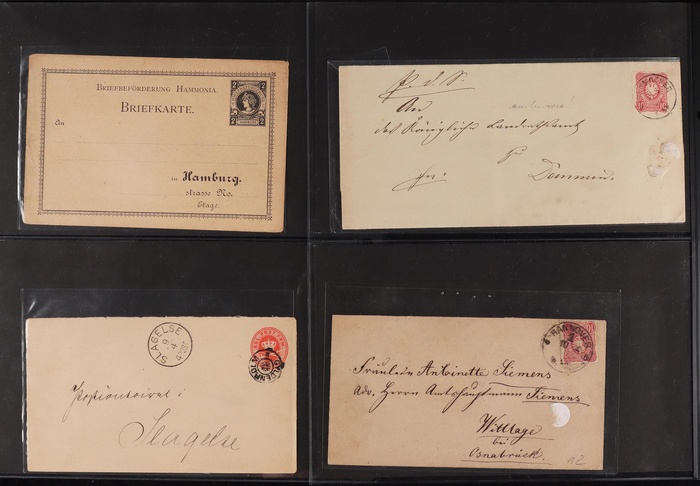 BRIEFBEFÖRDERUNG HAMMONIA.
BRIEFKARTE.
2 2
2 2
An
in Hamburg,
strasse No.
Etage.
P. d. S.
An
das Königliche Landrathsamt
zu
SLAGELSE
9
4
Slagelse
HANNOVER
Fräulein Antoinette Siemens
Adr. Herrn Amtshauptmann Siemens
Wittlage
bei
Osnabrück.
12